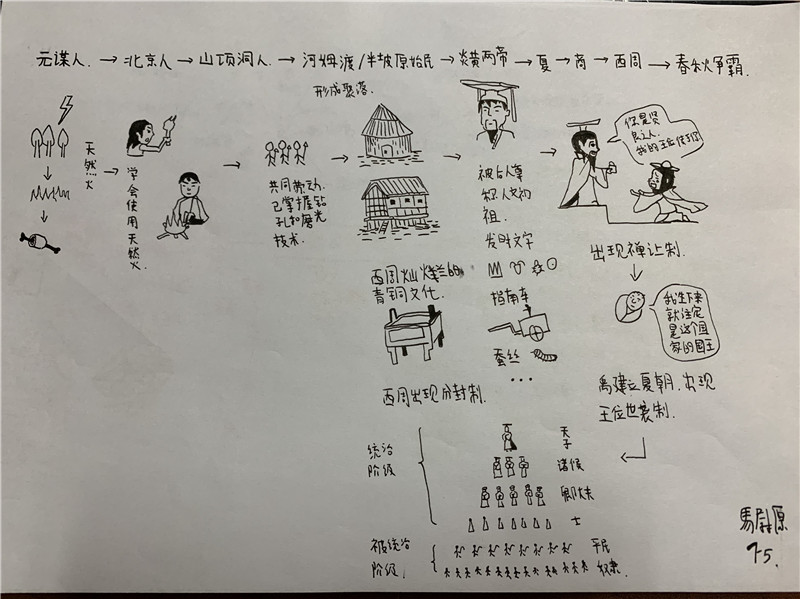 元谋人.→北京人→山顶洞人.→河姆渡/半坡原始民→炎黄两帝→夏→商→西周→春秋争霸.
形成聚落.
天然火
学会使用天然火.
共同劳动.
已掌握钻
孔和磨光
技术.
被后人尊
称人文初
祖.
发明文字
指南车
蚕丝
...
你是贤
良之人.
我的王位传于你
出现禅让制.
我生下来
就注定
是这个国
家的国王
禹建立夏朝.出现
王位世袭制.
西周灿烂的
青铜文化.
西周出现分封制.
统治
阶级
天子
诸候
卿大夫
士
被统治
阶级.
平民
奴隶.
馬尉原
75.